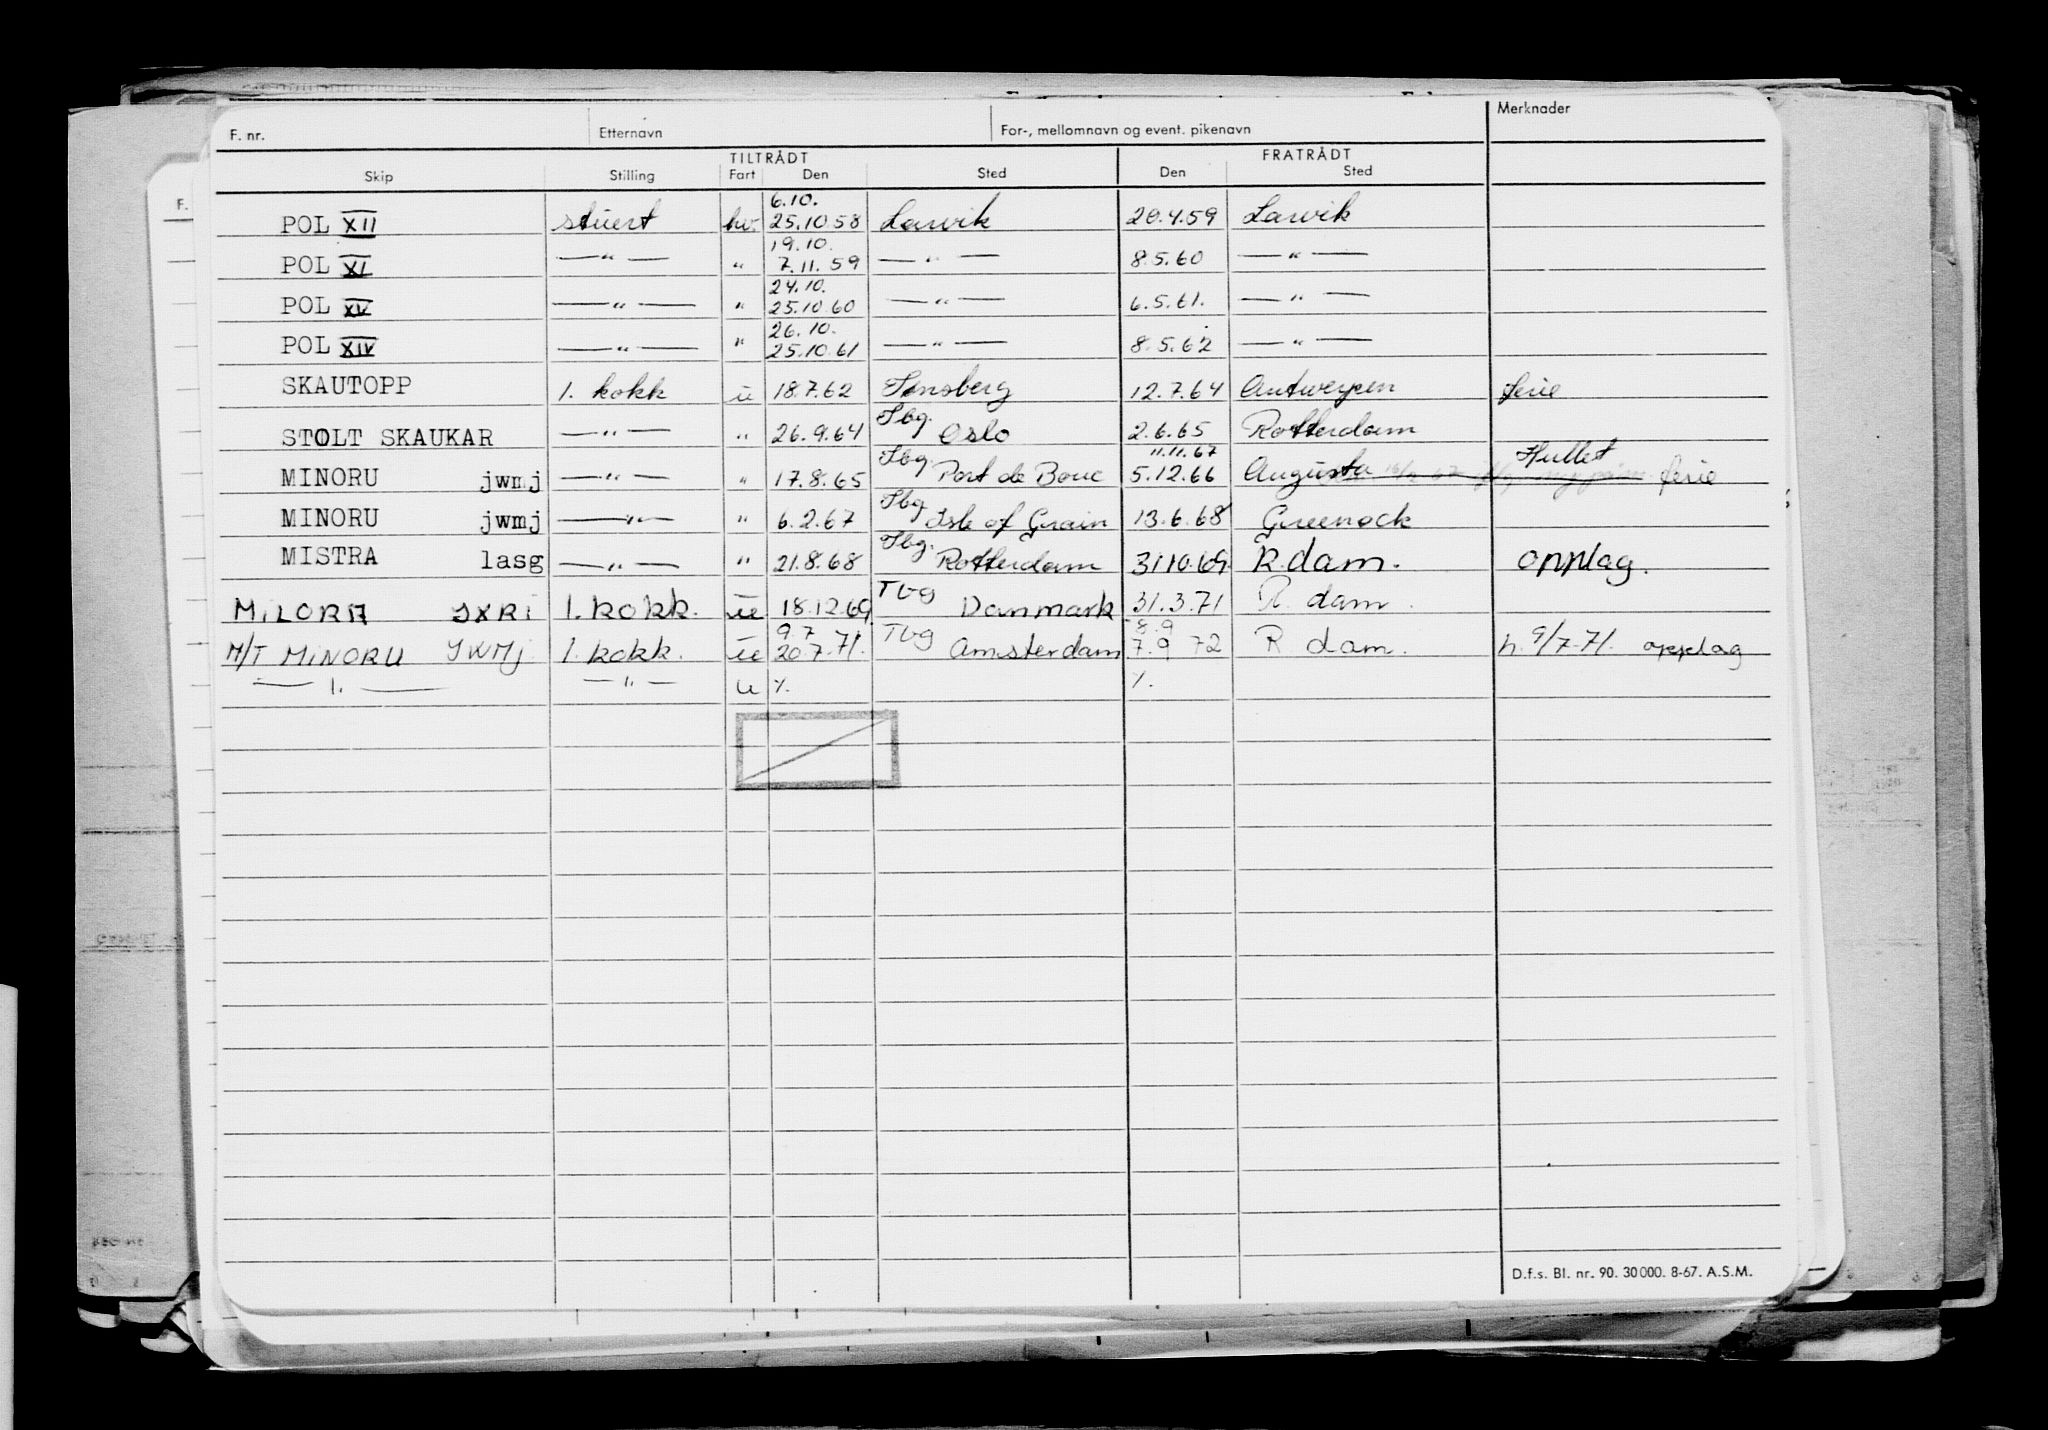 F. nr. Etternavn For-, mellomnavn og event. pikenavn Merknader
TILTRÅDT FRATRÅDT
Skip Stilling Fart Den Sted Den Sted
6.10.
POL XII stuert hv. 25.10.58 Larvik 20.4.59 Larvik
19.10.
POL XI —"— " 7.11.59 —"— 8.5.60 —"—
24.10.
POL XV —"— " 25.10.60 —"— 6.5.61. —"—
26.10.
POL XIV —"— " 25.10.61 —"— 8.5.62 —"—
SKAUTOPP 1. kokk u 18.7.62 Tønsberg 12.7.64 Antwerpen ferie
STOLT SKAUKAR —"— " 26.9.64 Tbg. Oslo 2.6.65 Rotterdam
11.11.67 Hullet
MINORU jwmj —"— " 17.8.65 Tbg. Port de Bouc 5.12.66 Augusta ferie
MINORU jwmj —"— " 6.2.67 Tbg Isle of Grain 13.6.68 Greenock
MISTRA lasg —"— " 21.8.68 Tbg. Rotterdam 31.10.69 R.dam. opplag.
MILORA JXRI 1. kokk. ue 18.12.69 TBG Danmark 31.3.71 R. dam.
9.7 8.9
M/T MINORU JWMJ 1. kokk. ue 20.7.71. TBG Amsterdam 7.9 72 R dam. h. 9/7-71. opplag
—"— —"— u %. %.
D.f.s. Bl. nr. 90. 30 000. 8-67. A.S.M.